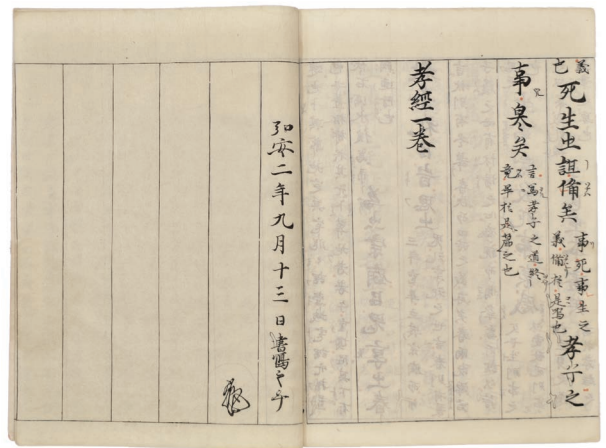 義
也
死生㞢誼備矣
事死事生之
義備於是焉也
孝子之
事矣
言爲孝子之道終
竟畢於是篇之也
孝經一卷
弘安二年九月十三日書寫之了